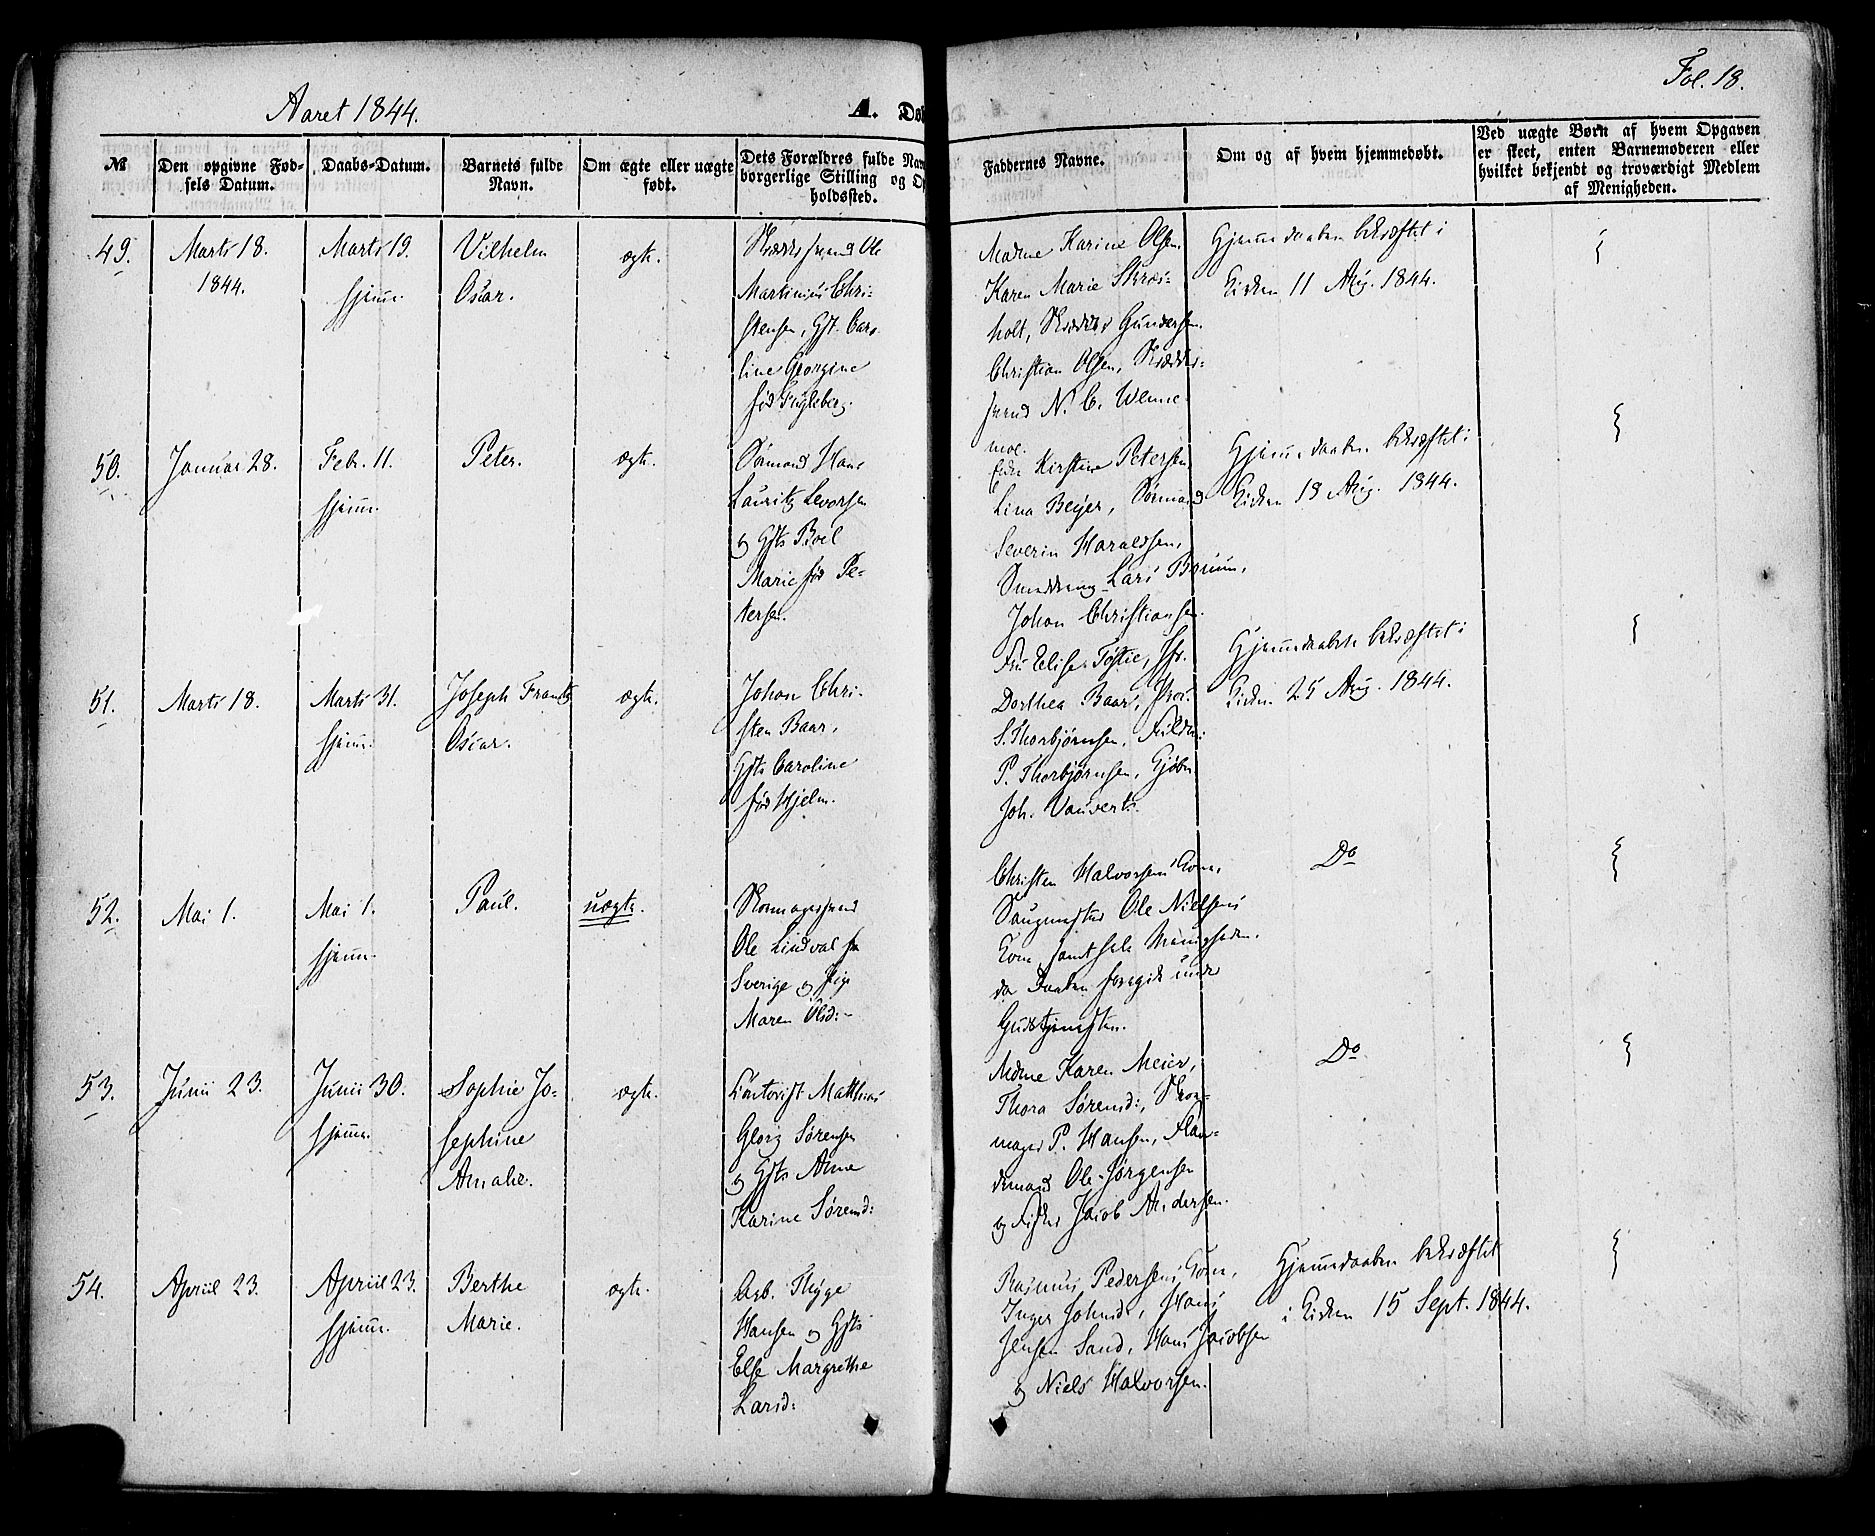 Aaret 1844.
A. Dø
Fol. 18.
№
Den opgivne Fød-
sels Datum.
Daabs-Datum.
Barnets fulde
Navn.
Om ægte eller uægte
født.
Dets Forældres fulde Nav
borgerlige Stilling og Op
holdssted.
Faddernes Navne.
Om og af hvem hjemmedøbt.
Ved uægte Børn af hvem Opgaven
er skeet, enten Barnemoderen eller
hvilket bekjendt og troværdigt Medlem
af Menigheden.
49.
Marts 18.
1844.
Marts 19.
hjem.
Vilhelm
Oscar.
ægte.
Ole
Martinius Chri-
stensen, Gst. Caro
line Georgine
fød Fugleberg.
Madme Karine Olsen.
Karen Marie Skræs-
holt, Skrædder Gundersen.
Christian Olsen, Skrædder-
svend N. C. Wenne-
moe.
Hjemmedaaben bekræftet i
Kirken 11 Aug. 1844.
50.
Januar 28.
Febr. 11.
hjem.
Peter.
ægte.
Sømand Hans
Lauritz Levorsen
og Gsts Boel
Marie fød Pe-
tersen.
Kirstine Petersen
Lina Beyer, Sømand
Severin Haraldsen,
Lars Bruun,
Johan Christiansen.
Hjemmedaaben bekræftet i
Kirken 18 Aug. 1844.
51.
Marts 18.
Marts 31.
hjem.
Joseph Frantz
Oscar.
ægte.
Johan Chri-
sten Baar,
Gsts Caroline
fød Hjelm.
Fru Elise Tostie, Jfr.
Dorthea Baar,
S. Thorbjørnsen,
P. Thorbjørnsen,
Joh. Vauverts.
Hjemmedaaben bekræftet i
Kirken 25 Aug. 1844.
52.
Mai 1.
Mai 1.
hjem.
Paul.
uægte.
Skomagersvend
Ole Lindval fra
Sverige og Pige
Maren Olsd:
Christen Halvorsens Kone,
Ole Nielsens
Kone samt hele Menigheden,
da Daaben foregik under
Gudstjenesten.
Do
53.
Junii 23.
Junii 30.
hjem.
Sophie Jo-
sephine
Amalie.
ægte.
Matthias
Georg Sørensen
og Gsts Anne
Karine Sørensd:
Madme Karen Meier,
Thora Sørensd:, Skoe-
mager P. Hansen,
Ole Jørgensen
og Fisker Jacob Andersen.
Do
54.
Apriil 23.
Apriil 23.
hjem.
Berthe
Marie.
ægte.
Arb. Thyge
Hansen og Gsts
Else Margrethe
Larsd:
Rasmus Pedersens Kone,
Inger Johnsd:, Hans
Jensen Sand, Hans Jacobsen
og Niels Halvorsen.
Hjemmedaaben bekræftet
i Kirken 15 Sept. 1844.